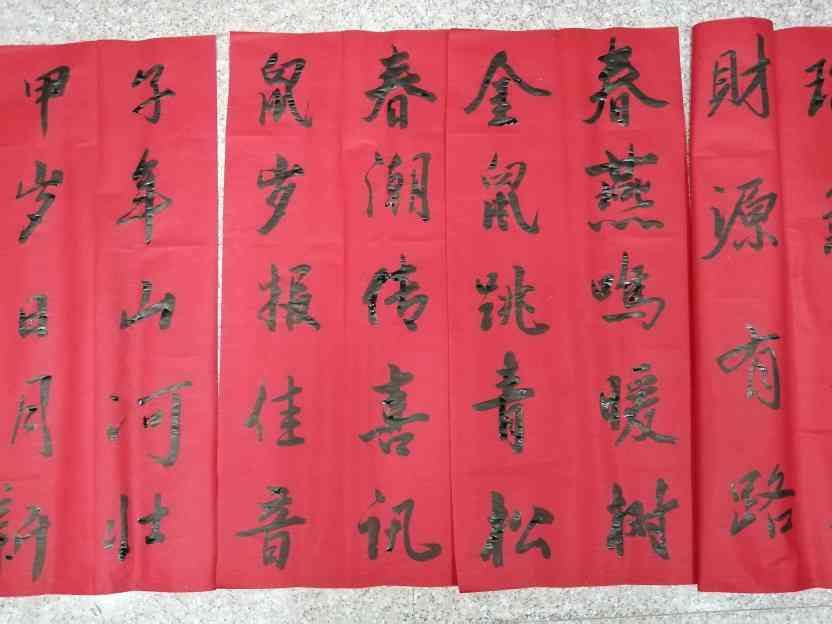 財源有路
春燕鸣暖树
金鼠跳青松
春潮传喜讯
鼠岁报佳音
子年山河壮
甲岁日月新